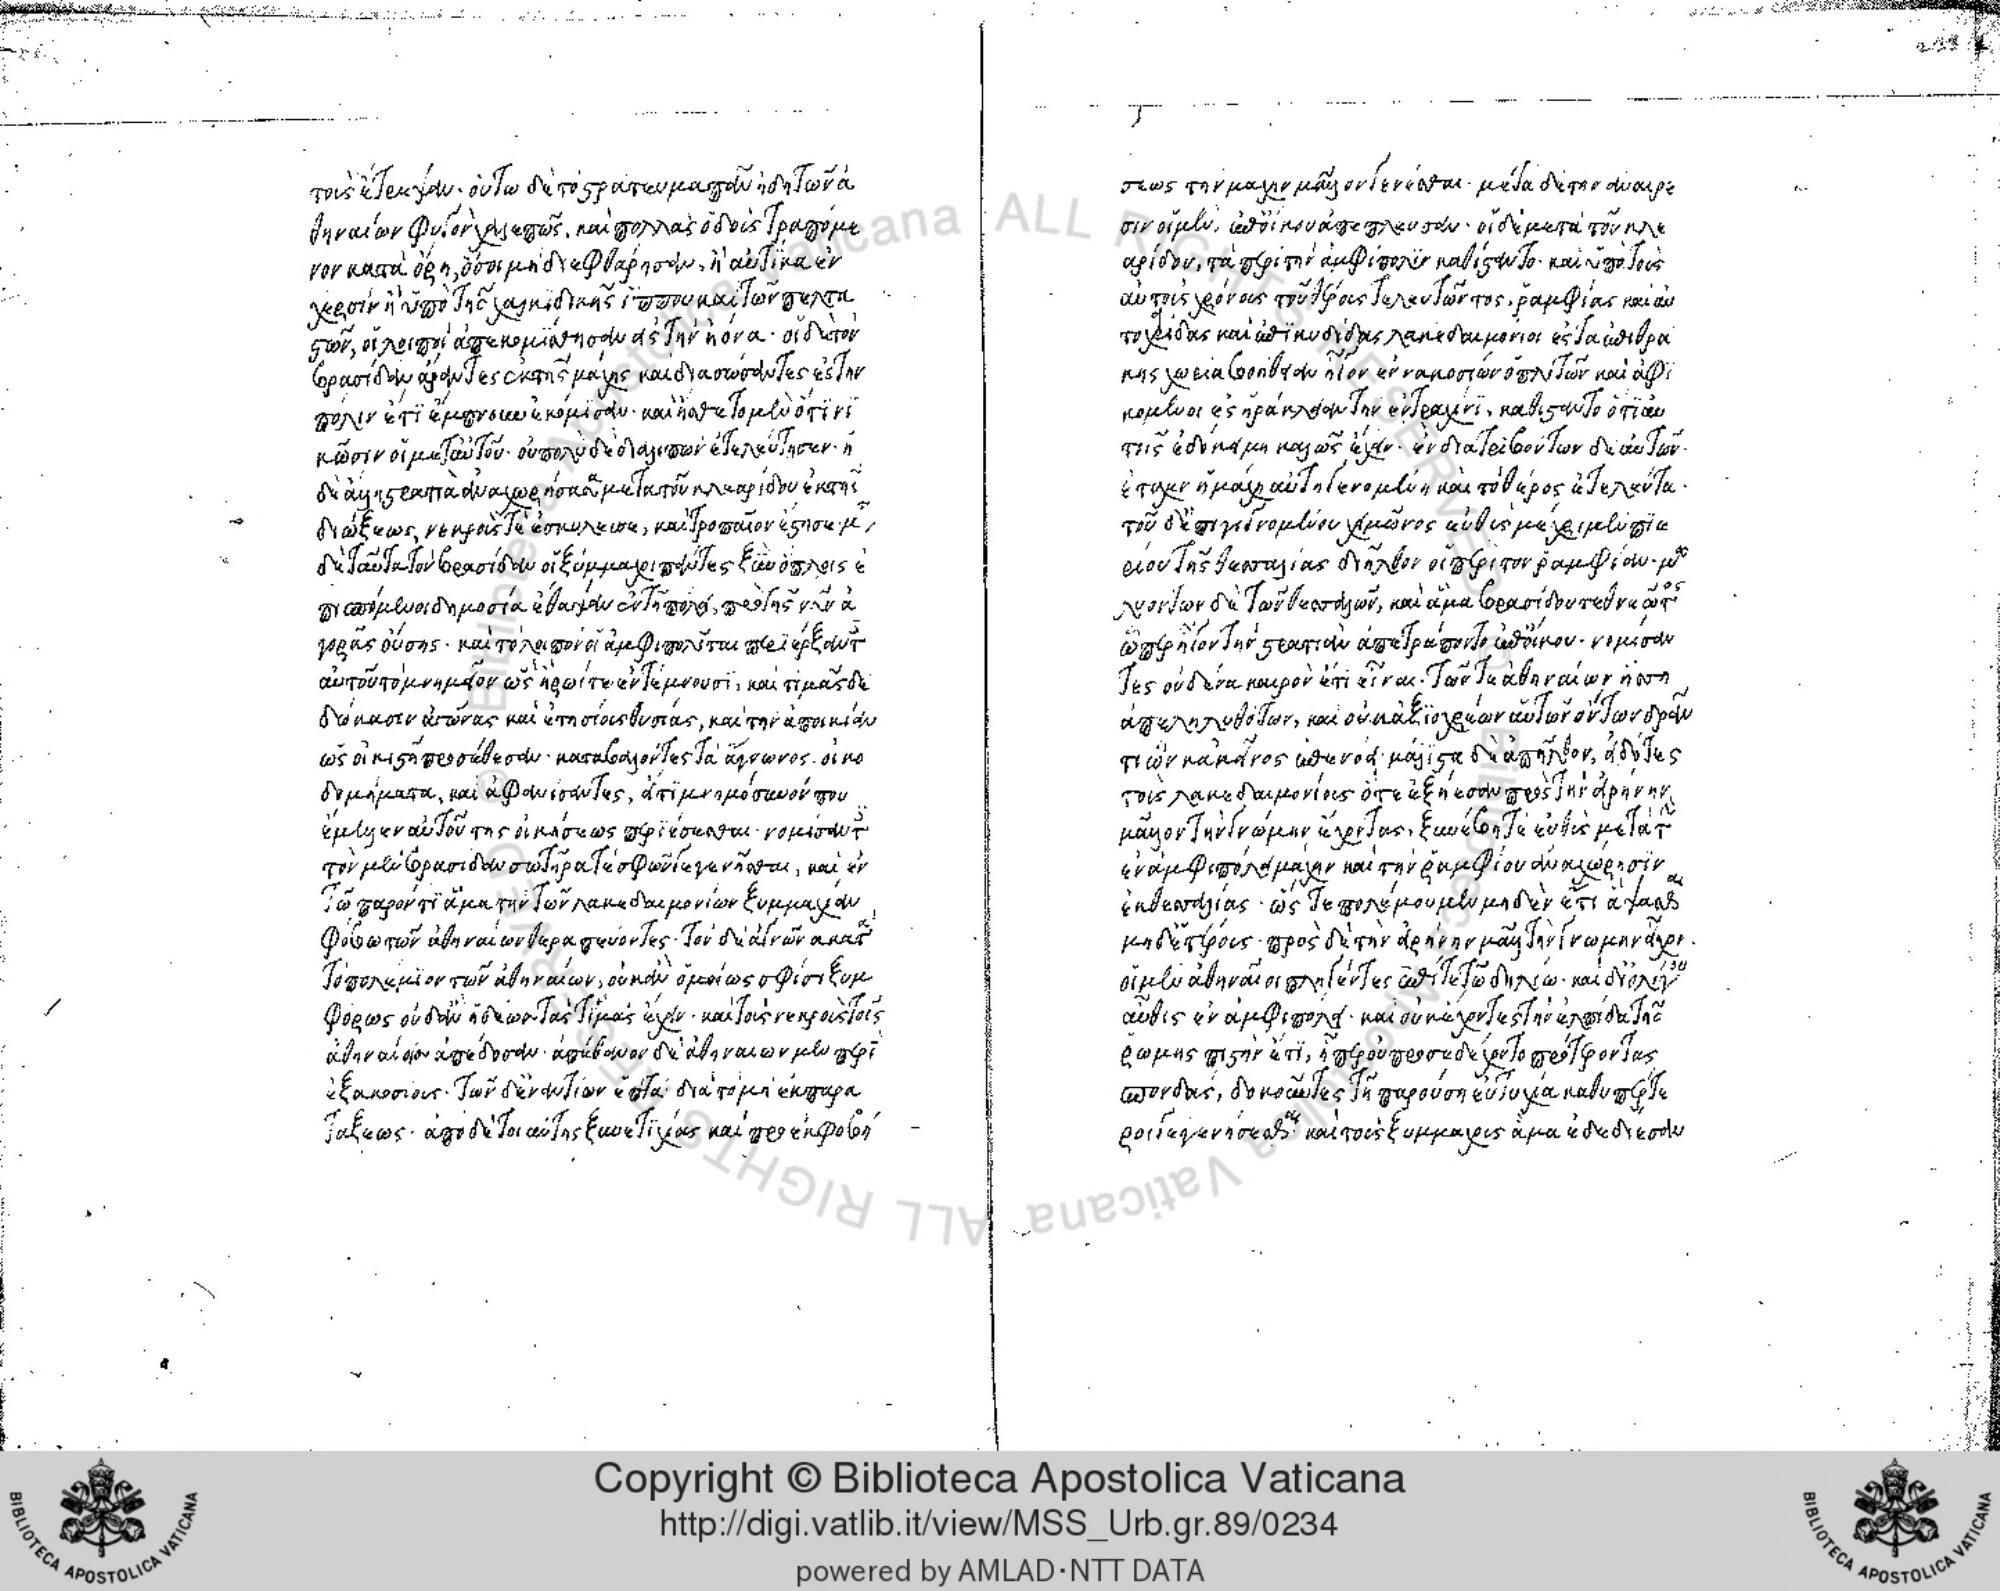 τοῖς ἐτειχων. οὕτω δὲ τὸ στράτευμα πᾶν ἤδη τῶν ἀ
θηναίων φυγὸν χαλεπῶς, καὶ πολλὰς ὁδοὺς τραπόμε
νον κατὰ ὄρη, ὅσοι μὴ διεφθάρησαν, ἢ αὐτίκα ἐν
χερσὶν ἢ ὑπὸ τῆς χαλκιδικῆς ἵππου καὶ τῶν πελτα
στῶν, οἱ λοιποὶ ἀπεκομίσθησαν ἐς τὴν ἠόνα. οἱ δὲ τὸν
βρασίδαν ἄραντες ἐκ τῆς μάχης καὶ διασώσαντες ἐς τὴν
πόλιν ἔτι ἔμπνουν ἐσεκόμισαν. καὶ ᾔσθετο μὲν ὅτι νι
κῶσιν οἱ μετ' αὐτοῦ. οὐ πολὺ δὲ διαλιπὼν ἐτελεύτησεν. ἡ
δὲ ἄλλη στρατιὰ ἀναχωρήσασα μετὰ τοῦ κλεαρίδου ἐκ τῆς
διώξεως, νεκρούς τε ἐσκύλευσε, καὶ τροπαῖον ἔστησε. μετὰ
δὲ ταῦτα τὸν βρασίδαν οἱ ξύμμαχοι πάντες ξὺν ὅπλοις ἐ
πισπόμενοι δημοσίᾳ ἔθαψαν ἐν τῇ πόλει, πρὸ τῆς νῦν ἀ
γορᾶς οὔσης. καὶ τὸ λοιπὸν οἱ ἀμφιπολῖται περιέρξαντες
αὐτοῦ τὸ μνημεῖον ὡς ἥρωί τε ἐντέμνουσι, καὶ τιμὰς δε
δώκασιν ἀγῶνας καὶ ἐτησίους θυσίας, καὶ τὴν ἀποικίαν
ὡς οἰκιστῇ προσέθεσαν. καταβαλόντες τὰ ἅγνωνος οἰκο
δομήματα, καὶ ἀφανίσαντες, εἴ τι μνημόσυνόν που
ἔμελλεν αὐτοῦ τῆς οἰκήσεως περιέσεσθαι. νομίσαντες
τὸν μὲν βρασίδαν σωτῆρά τε σφῶν γεγενῆσθαι, καὶ ἐν
τῷ παρόντι ἅμα τὴν τῶν λακεδαιμονίων ξυμμαχίαν
φόβῳ τῶν ἀθηναίων θεραπεύοντες. τὸν δὲ ἅγνωνα κατὰ
τὸ πολέμιον τῶν ἀθηναίων, οὐκ ἂν ὁμοίως σφίσι ξυμ
φόρως οὐδ' ἂν ἡδέως τὰς τιμὰς ἔχειν. καὶ τοὺς νεκροὺς τοῖς
ἀθηναίοις ἀπέδοσαν. ἀπέθανον δὲ ἀθηναίων μὲν περὶ
ἑξακοσίους. τῶν δ' ἐναντίων ἑπτά. διὰ τὸ μὴ ἐκ παρα
τάξεως. ἀπὸ δὲ τοιαύτης ξυντυχίας καὶ προεκφοβή
σεως τὴν μάχην μᾶλλον γενέσθαι. μετὰ δὲ τὴν ἀναίρε
σιν οἱ μὲν, ἐπ' οἴκου ἀπέπλευσαν. οἱ δὲ μετὰ τοῦ κλε
αρίδου, τὰ περὶ τὴν ἀμφίπολιν καθίσταντο. καὶ ὑπὸ τοὺς
αὐτοὺς χρόνους τοῦ θέρους τελευτῶντος, ῥαμφίας καὶ αὐ
τοχαρίδας καὶ ἐπικυδίδας λακεδαιμόνιοι ἐς τὰ ἐπὶ θρᾴ
κης χωρία βοήθειαν ἦγον ἐννακοσίων ὁπλιτῶν καὶ ἀφι
κόμενοι ἐς ἡράκλειαν τὴν ἐν τραχῖνι, καθίσταντο ὅτι αὐ
τοῖς ἐδόκει μὴ καλῶς ἔχειν. ἐνδιατριβόντων δὲ αὐτῶν.
ἔτυχεν ἡ μάχη αὕτη γενομένη καὶ τὸ θέρος ἐτελεύτα.
τοῦ δ' ἐπιγιγνομένου χειμῶνος εὐθὺς μέχρι μὲν πιε
ρίου τῆς θεσσαλίας διῆλθον οἱ περὶ τὸν ῥαμφίαν. κω
λυόντων δὲ τῶν θεσσαλῶν, καὶ ἅμα βρασίδου τεθνεῶτος
ᾧπερ ἦγον τὴν στρατιὰν ἀπετράποντο ἐπ' οἴκου. νομίσαν
τες οὐδένα καιρὸν ἔτι εἶναι. τῶν τε ἀθηναίων ἥσσῃ
ἀπεληλυθότων, καὶ οὐκ ἀξιοχρέων αὐτῶν ὄντων δρᾶν
τι ὧν κἀκεῖνος ἐπενόει. μάλιστα δὲ ἀπῆλθον, εἰδότες
τοὺς λακεδαιμονίους ὅτε ἐξῄεσαν πρὸς τὴν εἰρήνην
μᾶλλον τὴν γνώμην ἔχοντας. ξυνέβη τε εὐθὺς μετὰ τὴν
ἐν ἀμφιπόλει μάχην καὶ τὴν ῥαμφίου ἀναχώρησιν
ἐκ θεσσαλίας. ὥστε πολέμου μὲν μηδὲν ἔτι ἅψασθαι
μηδετέρους. πρὸς δὲ τὴν εἰρήνην μᾶλλον τὴν γνώμην εἶχον.
οἱ μὲν ἀθηναῖοι πληγέντες ἐπί τε τῷ δηλίῳ. καὶ δι' ὀλίγου
αὖθις ἐν ἀμφιπόλει. καὶ οὐκ ἔχοντες τὴν ἐλπίδα τῆς
ῥώμης πιστὴν ἔτι, ᾗπερ οὐ προσεδέχοντο πρότερον τὰς
σπονδάς, δοκοῦντες τῇ παρούσῃ εὐτυχίᾳ καθυπέρτε
ροι γεγενήσεσθαι καὶ τοὺς ξυμμάχους ἅμα ἐδεδίεσαν
Copyright © Biblioteca Apostolica Vaticana
http://digi.vatlib.it/view/MSS_Urb.gr.89/0234
powered by AMLAD·NTT DATA